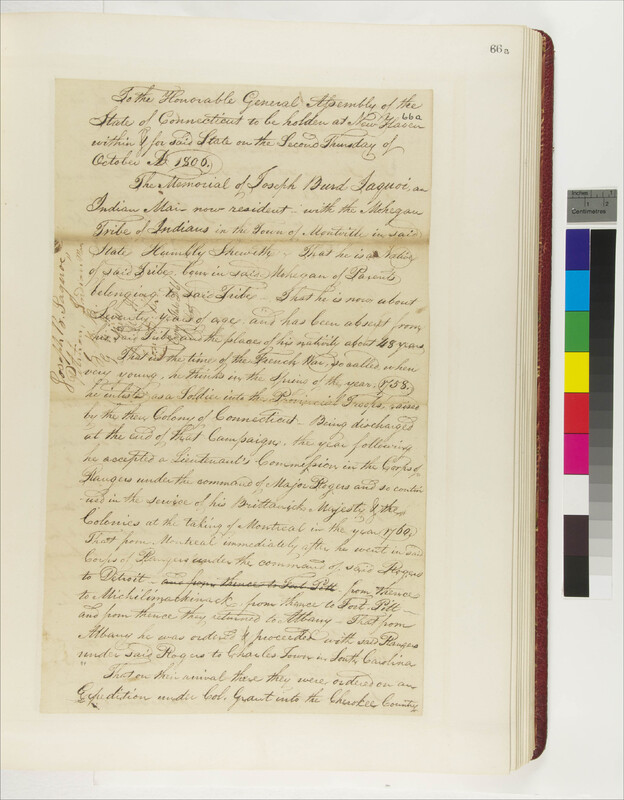 66a
To the Honorable General Assembly of the
State of Connecticut to be holden at New Haven
66a
within & for said State on the Second Thursday of
October AD 1806.
The Memorial of Joseph Burd Jaquoi, an
Indian Man now resident with the Mohegan
Tribe of Indians in the Town of Montville in said
State Humbly Sheweth - That he is a Native
of said Tribe, born in said Mohegan of Parents
belonging to said Tribe - That he is now about
Seventy years of age and has been absent from
his said Tribe and the place of his nativity about 48 years,
That in the time of the French War, so called, when
very young, he thinks in the Spring of the year 1758.
he inlisted as a Soldier into the Provincial Troops, raised
by the then Colony of Connecticut - Being discharged
at the End of that Campaign, the year following
he accepted a Lieutenant's Commission in the Corps of
Rangers under the command of Major Rogers and so contin
-ued in the service of his Brittanick Majesty & the
Colonies at the taking of Montreal in the year 1760,
That from Montreal immediately after he went in said
Corps of Rangers under the command of said Rogers
to Detroit - and from thence to Fort Pitt - from thence
to Michilimackinack - from thence to Fort Pitt -
and from thence they returned to Albany - That from
Albany he was ordered & proceeded with said Rangers
under said Rogers to Charles Town in South Carolina
That on their arrival there they were ordered on an
Expedition under Col. Grant into the Cherokee Country
Joseph B. Jaquoe
Inches
1 2
Centimetres